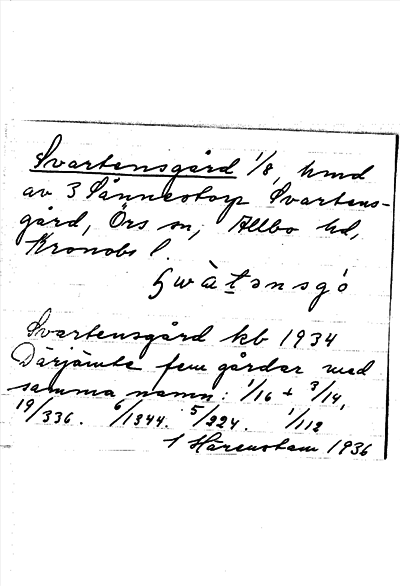 Svartensgård 1/8, hmd
av 3 Sännestorp Svartens-
gård, Örs sn, Allbo hd,
Kronobs l.
Svartensgård kb 1934
Därjämte fem gårdar med
samma namn: 1/16 + 3/14,
19/336. 6/1344. 5/224. 1/112
Härenstam 1936